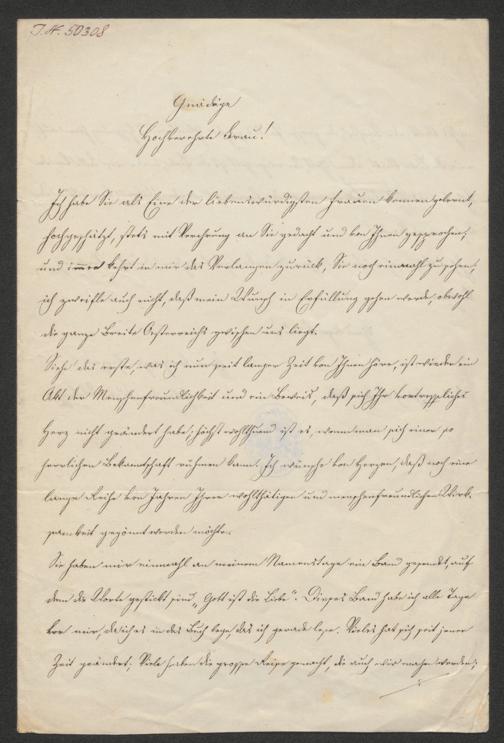 I.N. 50308
Gnädige
Hochverehrte Frau!
Ich habe Sie als Eine der liebenswürdigsten Frauen kennen gelernt,
hochgeschätzt, stets mit Verehrung an Sie gedacht und von Ihnen gesprochen,
und immer kehrt in mir das Verlangen zurück, Sie noch einmahl zu sehen;
ich zweifle auch nicht, daß mein Wunsch in Erfüllung gehen werde, obwohl
die ganze Breite Oesterreichs zwischen uns liegt.
Siehe das erste, was ich nun seit langer Zeit von Ihnen höre, ist wieder ein
Akt der Menschenfreundlichkeit und ein Beweis, daß sich Ihr vortreffliches
Herz nicht geändert habe; höchst wohlthuend ist es, wenn man sich einer so
herrlichen Bekanntschaft rühmen kann. Ich wünsche von Herzen, daß noch eine
lange Reihe von Jahren Ihrer wohlthätigen und menschenfreundlichen Wirk-
samkeit gegönnt werden möchte.
Sie haben mir einmahl an meinem Namenstage ein Band gesendet, auf
dem die Worte gestickt sind „Gott ist die Liebe“. Dieses Band habe ich alle Tage
vor mir, da ich es in das Buch lege, das ich gerade lese. Vieles hat sich seit jener
Zeit geändert; Viele haben die grosse Reise gemacht, die auch wir machen werden;